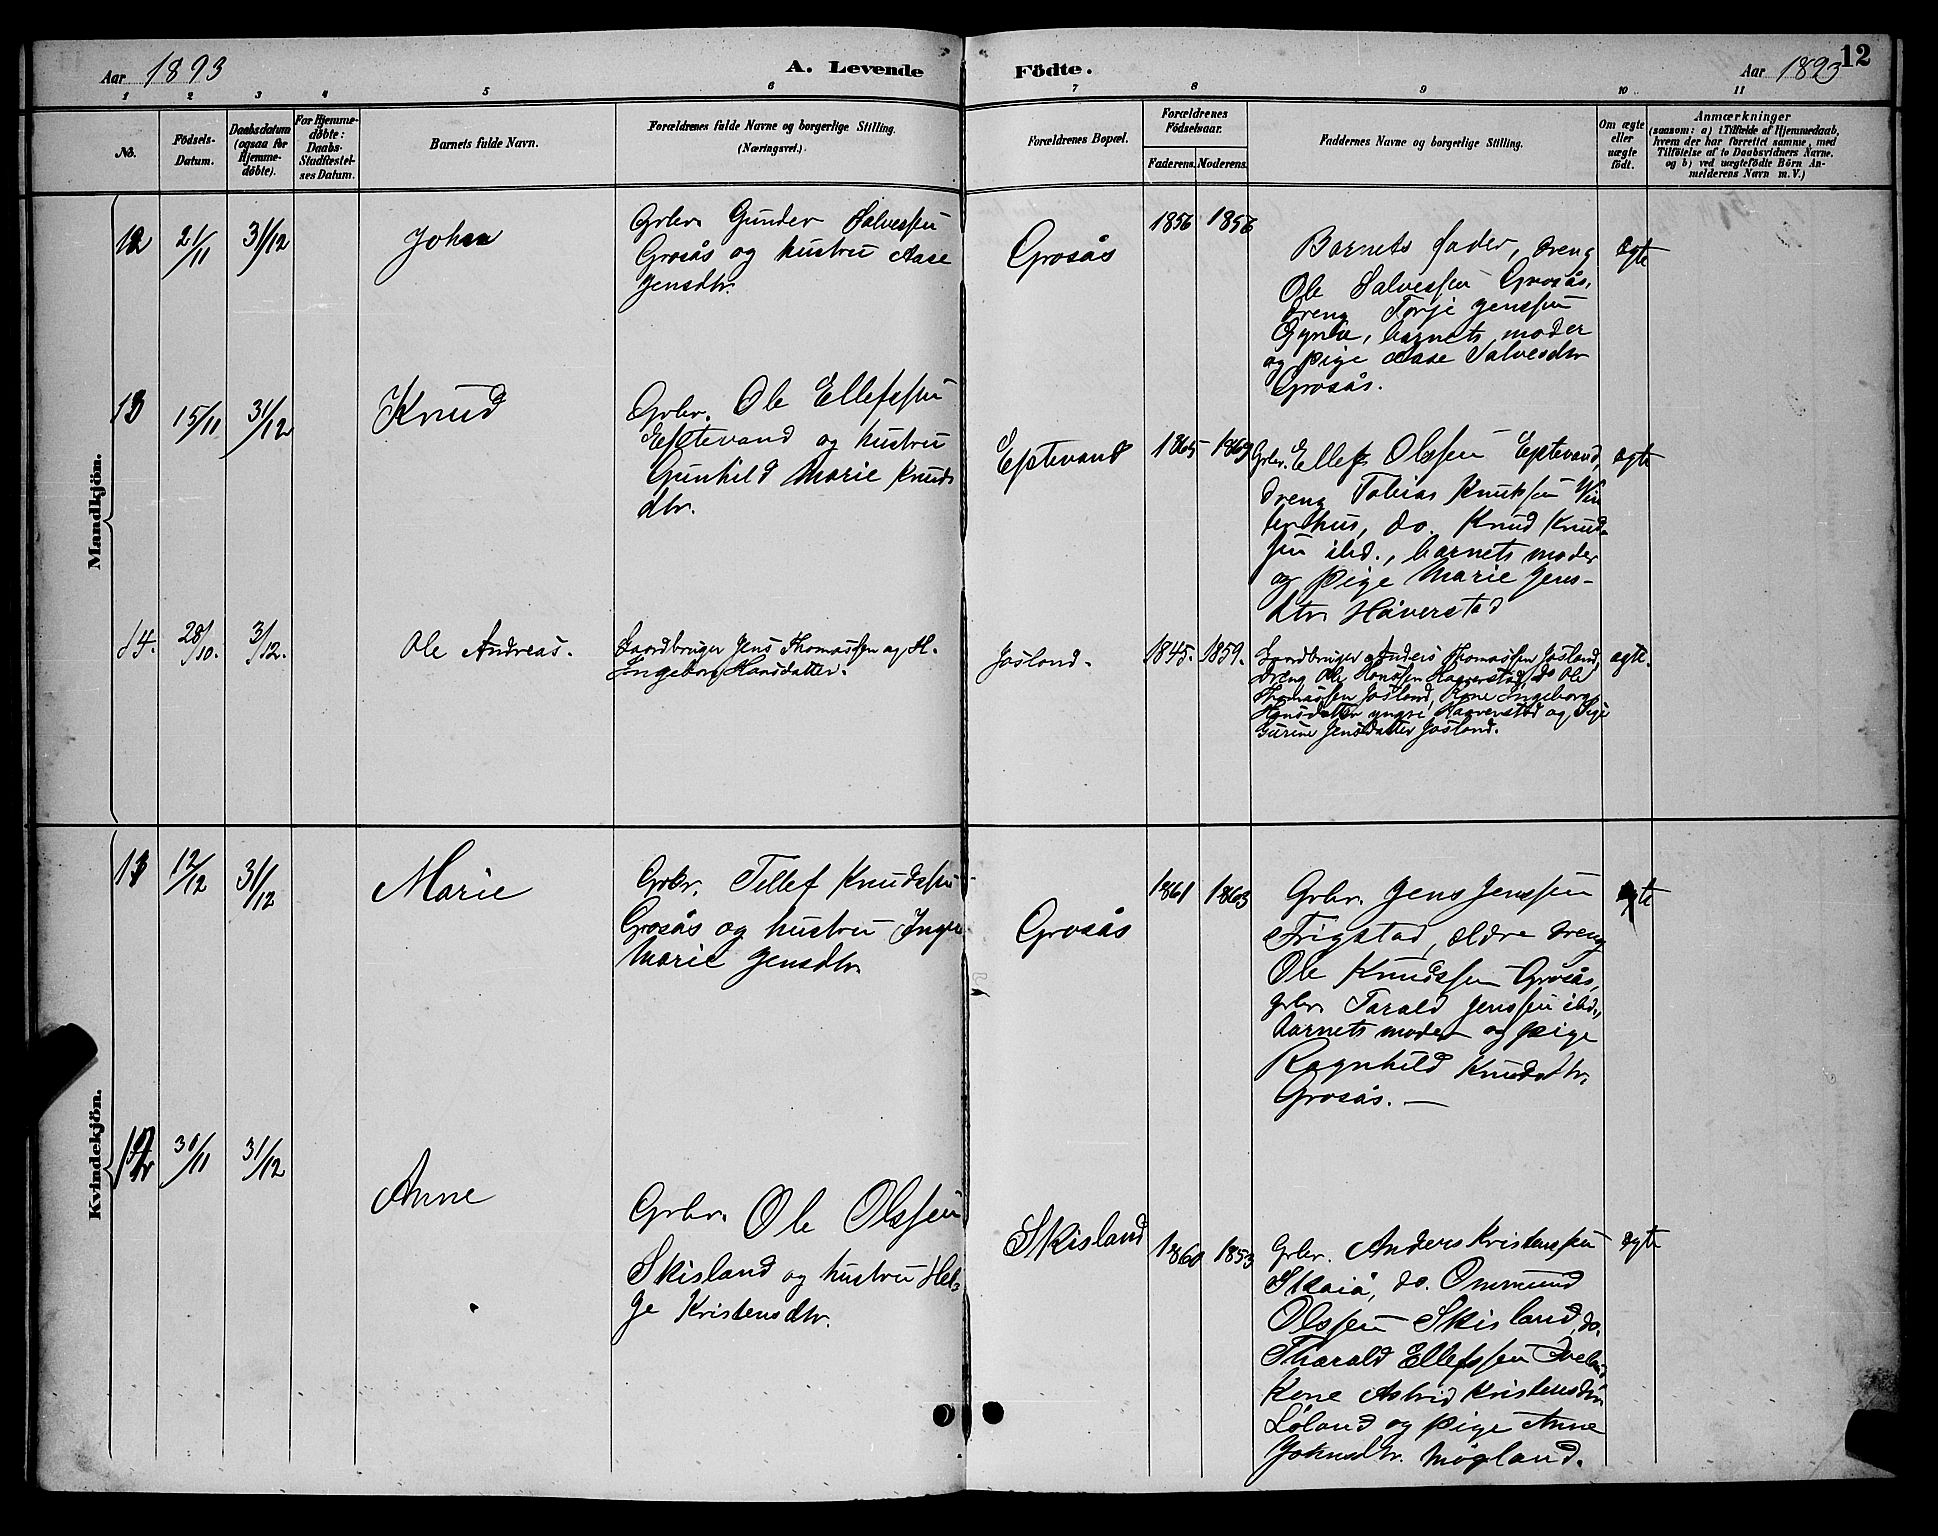 Aar 1893
A. Levende
Födte.
Aar 1893
12
1
2
3
4
5
6
7
8
9
10
11
No.
Födsels-
Datum.
Daabsdatum
(ogsaa for
Hjemme-
døbte).
For Hjemme-
døbte:
Daabs-
Stadfæstel-
ses Datum.
Barnets fulde Navn.
Forældrenes fulde Navne og borgerlige Stilling.
(Næringsvei.)
Forældrenes Bopæl.
Forældrenes
Fødselsaar.
Faderens.
Moderens.
Faddernes Navne og borgerlige Stilling.
Om ægte
eller
uægte
födt.
Anmærkninger
(saasom: a) i Tilfælde af Hjemmedaab,
hvem der har forrettet samme, med
Tilföielse af to Daabsvidners Navne.
og b) ved uægtefödte Börn An-
melderens Navn m. V.)
Mandkjön.
12
21/11
31/12
Johan
Grbr. Gunder Salvessen
Grosås og hustru Aase
Jensdtr.
Grosås
1856
1856
Barnets fader, dreng
Ole Salvessen Grosås,
dreng Torje Jenssen
barnets moder
og pige Aase Salvesdtr
Grosås.
ægte
13
15/11
31/12
Knud
Grbr. Ole Ellefssen
Eptevand og hustru
Gunhild Marie Knuds
dtr.
Eptevand
1865
1869
Grbr. Ellef Olssen Eptevand,
dreng Tobias Knudssen Vin
terhus, do. Knud Knud-
sen ibd., barnets moder
og pige Marie Jens-
dtr Håverstad
ægte
14.
28/10.
3/12.
Ole Andreas.
Gaardbruger Jens Thomassen og H.
Ingeborg Hansdatter.
Josland.
1845.
1859.
Gaardbruger Anders Thomassen Josland,
Dreng Ole Hanssen Haaverstad, do Ole
Thomassen Josland, Kone Ingeborg
Hansdatter yngre Haaverstad og Pige
Gurine Jensdatter Josland.
ægte.
Kvindekjön.
13
12/12
31/12
Marie
Grbr. Tellef Knudssen
Grosås og hustru Inger
Marie Jensdtr
Grosås
1861
1863
Grbr. Jens Jenssen
Frigstad, ældre dreng
Ole Knudssen Grosås,
grbr Tarald Jenssen ibd.,
barnets moder og pige
Ragnhild Knudsdtr.
Grosås. —
ægte
12
30/11
31/12
Anne
Grbr. Ole Olssen
Skisland og hustru Hel-
ge Kristensdtr.
Skisland
1860
1853
Grbr. Anders Kristenssen
Skaiå, do. Ommund
Olssen Skisland, do.
Tharald Ellefssen Iveland
Kone Astrid Kristensdtr
Løland og pige Anne
Johnsdtr. Møgland.
ægte